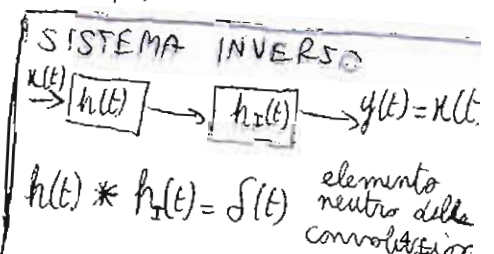 SISTEMA INVERSO
x(t) h(t) h_I(t) y(t) = x(t
h(t) * h_I(t) = δ(t) elemento
neutro della
convoluzion